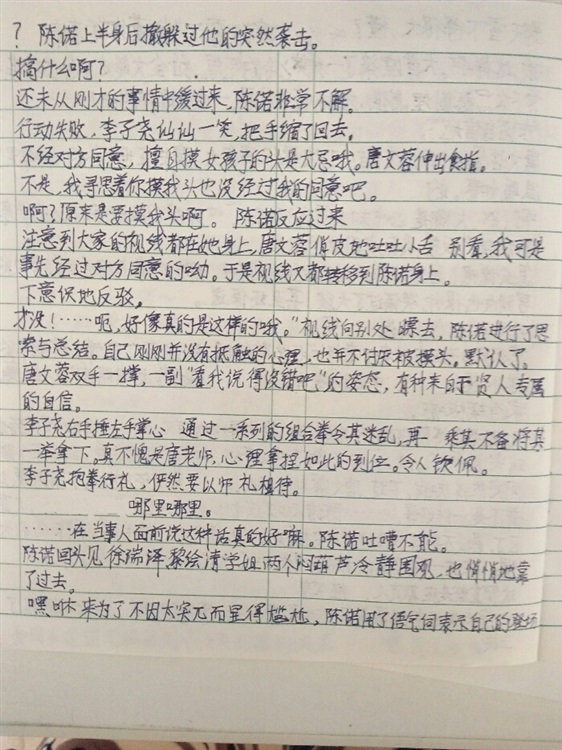 ? 陈偌上半身后撤躲过他的突然袭击。
搞什么啊?
还未从刚才的事情中缓过来,陈偌非常不解。
行动失败,李子尧仙仙一笑,把手缩了回去。
不经对方同意,擅自摸女孩子的头是大忌哦。唐文蓉伸出食指。
不是,我寻思着你摸我头也没经过我的同意吧。
啊?原来是要摸我头啊。 陈偌反应过来
注意到大家的视线都在她身上,唐文蓉俏皮地吐吐小舌 别看,我可是
事先经过对方同意的呦。于是视线又都转移到陈偌身上。
下意识地反驳,
才没!……呃,好像真的是这样的哦。"视线向别处瞟去,陈偌进行了思
索与总结。自己刚刚并没有抵触的心理,也并不讨厌被摸头。默认了。
唐文蓉双手一撑,一副"看我说得没错吧"的姿态,有种来自贤人专属
的自信。
李子尧右手捶左手掌心 通过一系列的组合拳令其迷乱,再 乘其不备将其
一举拿下。真不愧是唐老师,心理拿捏如此的到位。令人钦佩。
李子尧抱拳行礼,俨然要以师礼相待。
哪里哪里。
……在当事人面前说这种话真的好嘛。陈偌吐嘈不能。
陈偌回头见徐瑞泽黎绘清学姐两个闷葫芦冷静围观,也悄悄地靠
了过去。
嘿咻 来为了不因太突兀而显得尴尬,陈偌用了语气词表示自己的登场